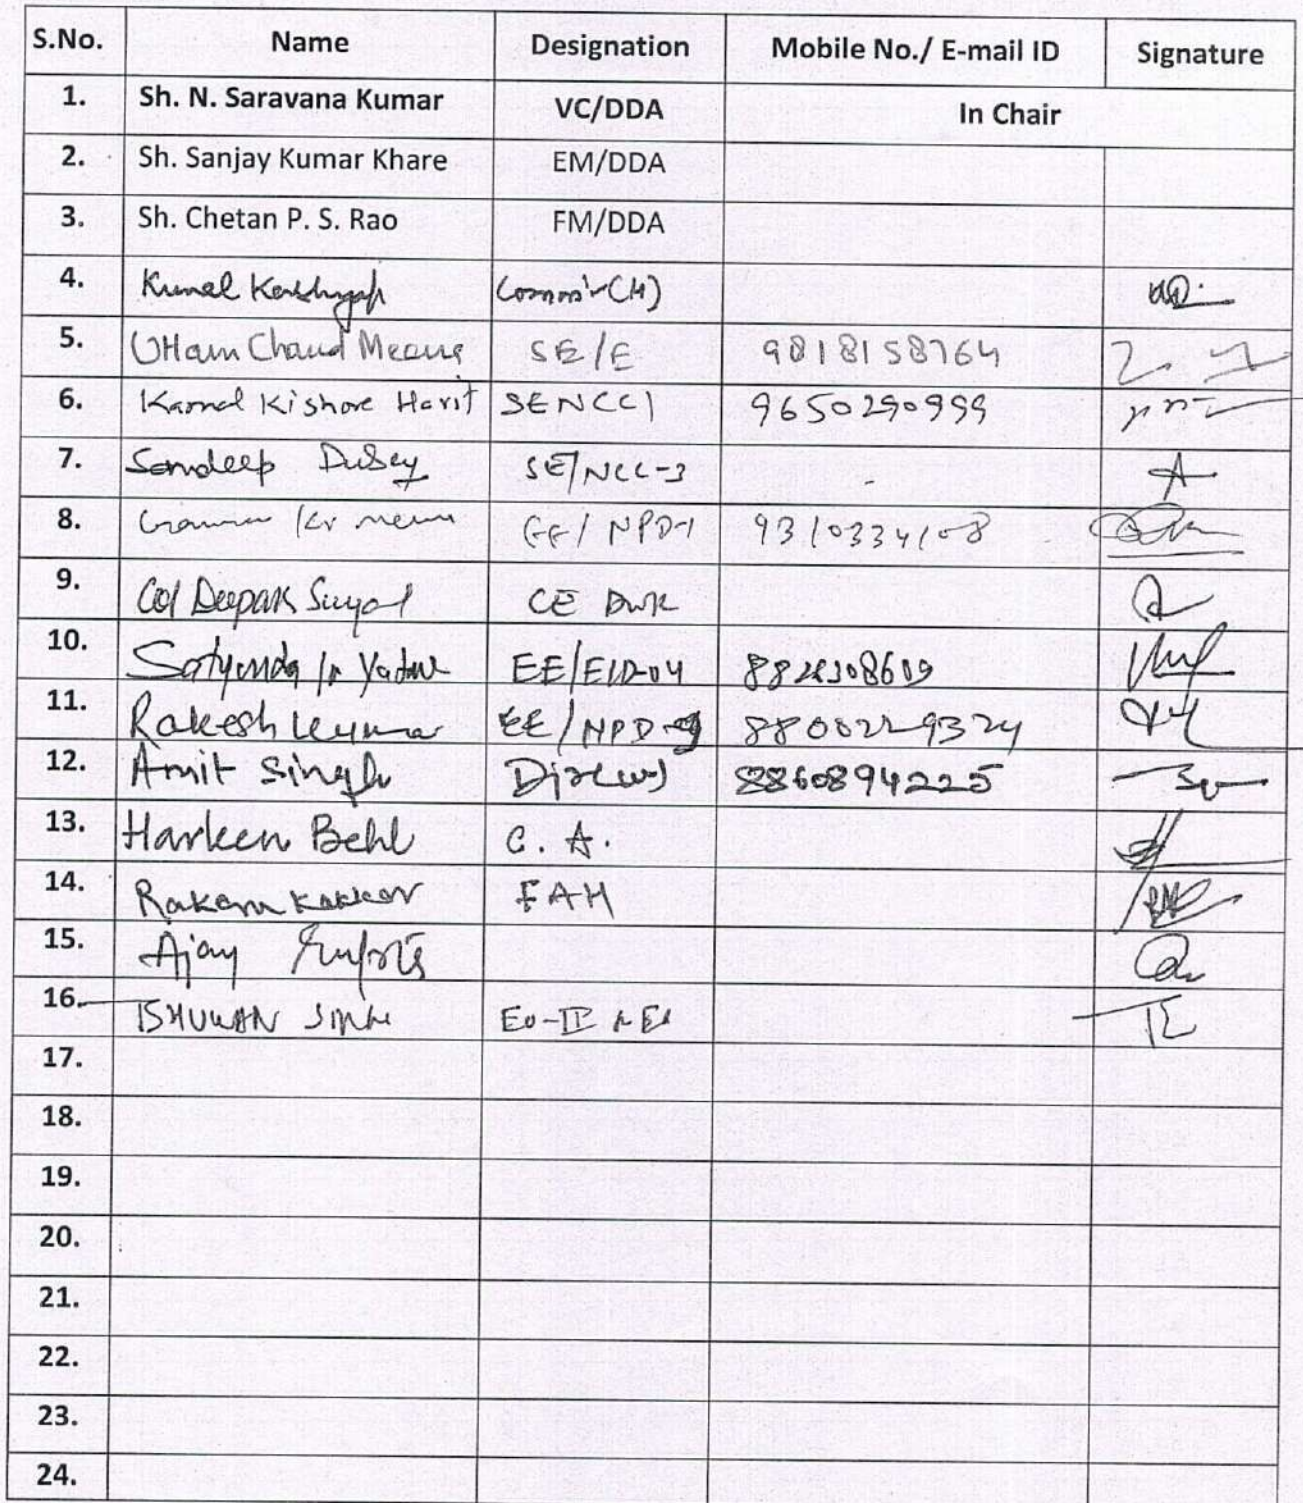 S.No. Name Designation Mobile No./ E-mail ID Signature
1. Sh. N. Saravana Kumar VC/DDA In Chair
2. Sh. Sanjay Kumar Khare EM/DDA
3. Sh. Chetan P. S. Rao FM/DDA
4. Kumal Kashyap Commr(H)
5. Uttam Chand Meena SE/E 9818158764
6. Kamal Kishore Harit SENCC1 9650290999
7. Sandeep Dubey SE/NCC-3
8. Kr NPD-1 9310334108
9. Col Deepak Suyal CE DWK
10. Yadav EE/ELD-04
11. Rakesh Kumar EE/NPD 8800229324
12. Amit Singh 8860894225
13. Harleen Behl C. A.
14. FAH
15. Ajay Gupta
16. ISHUWAN SINGH EO-II
17.
18.
19.
20.
21.
22.
23.
24.